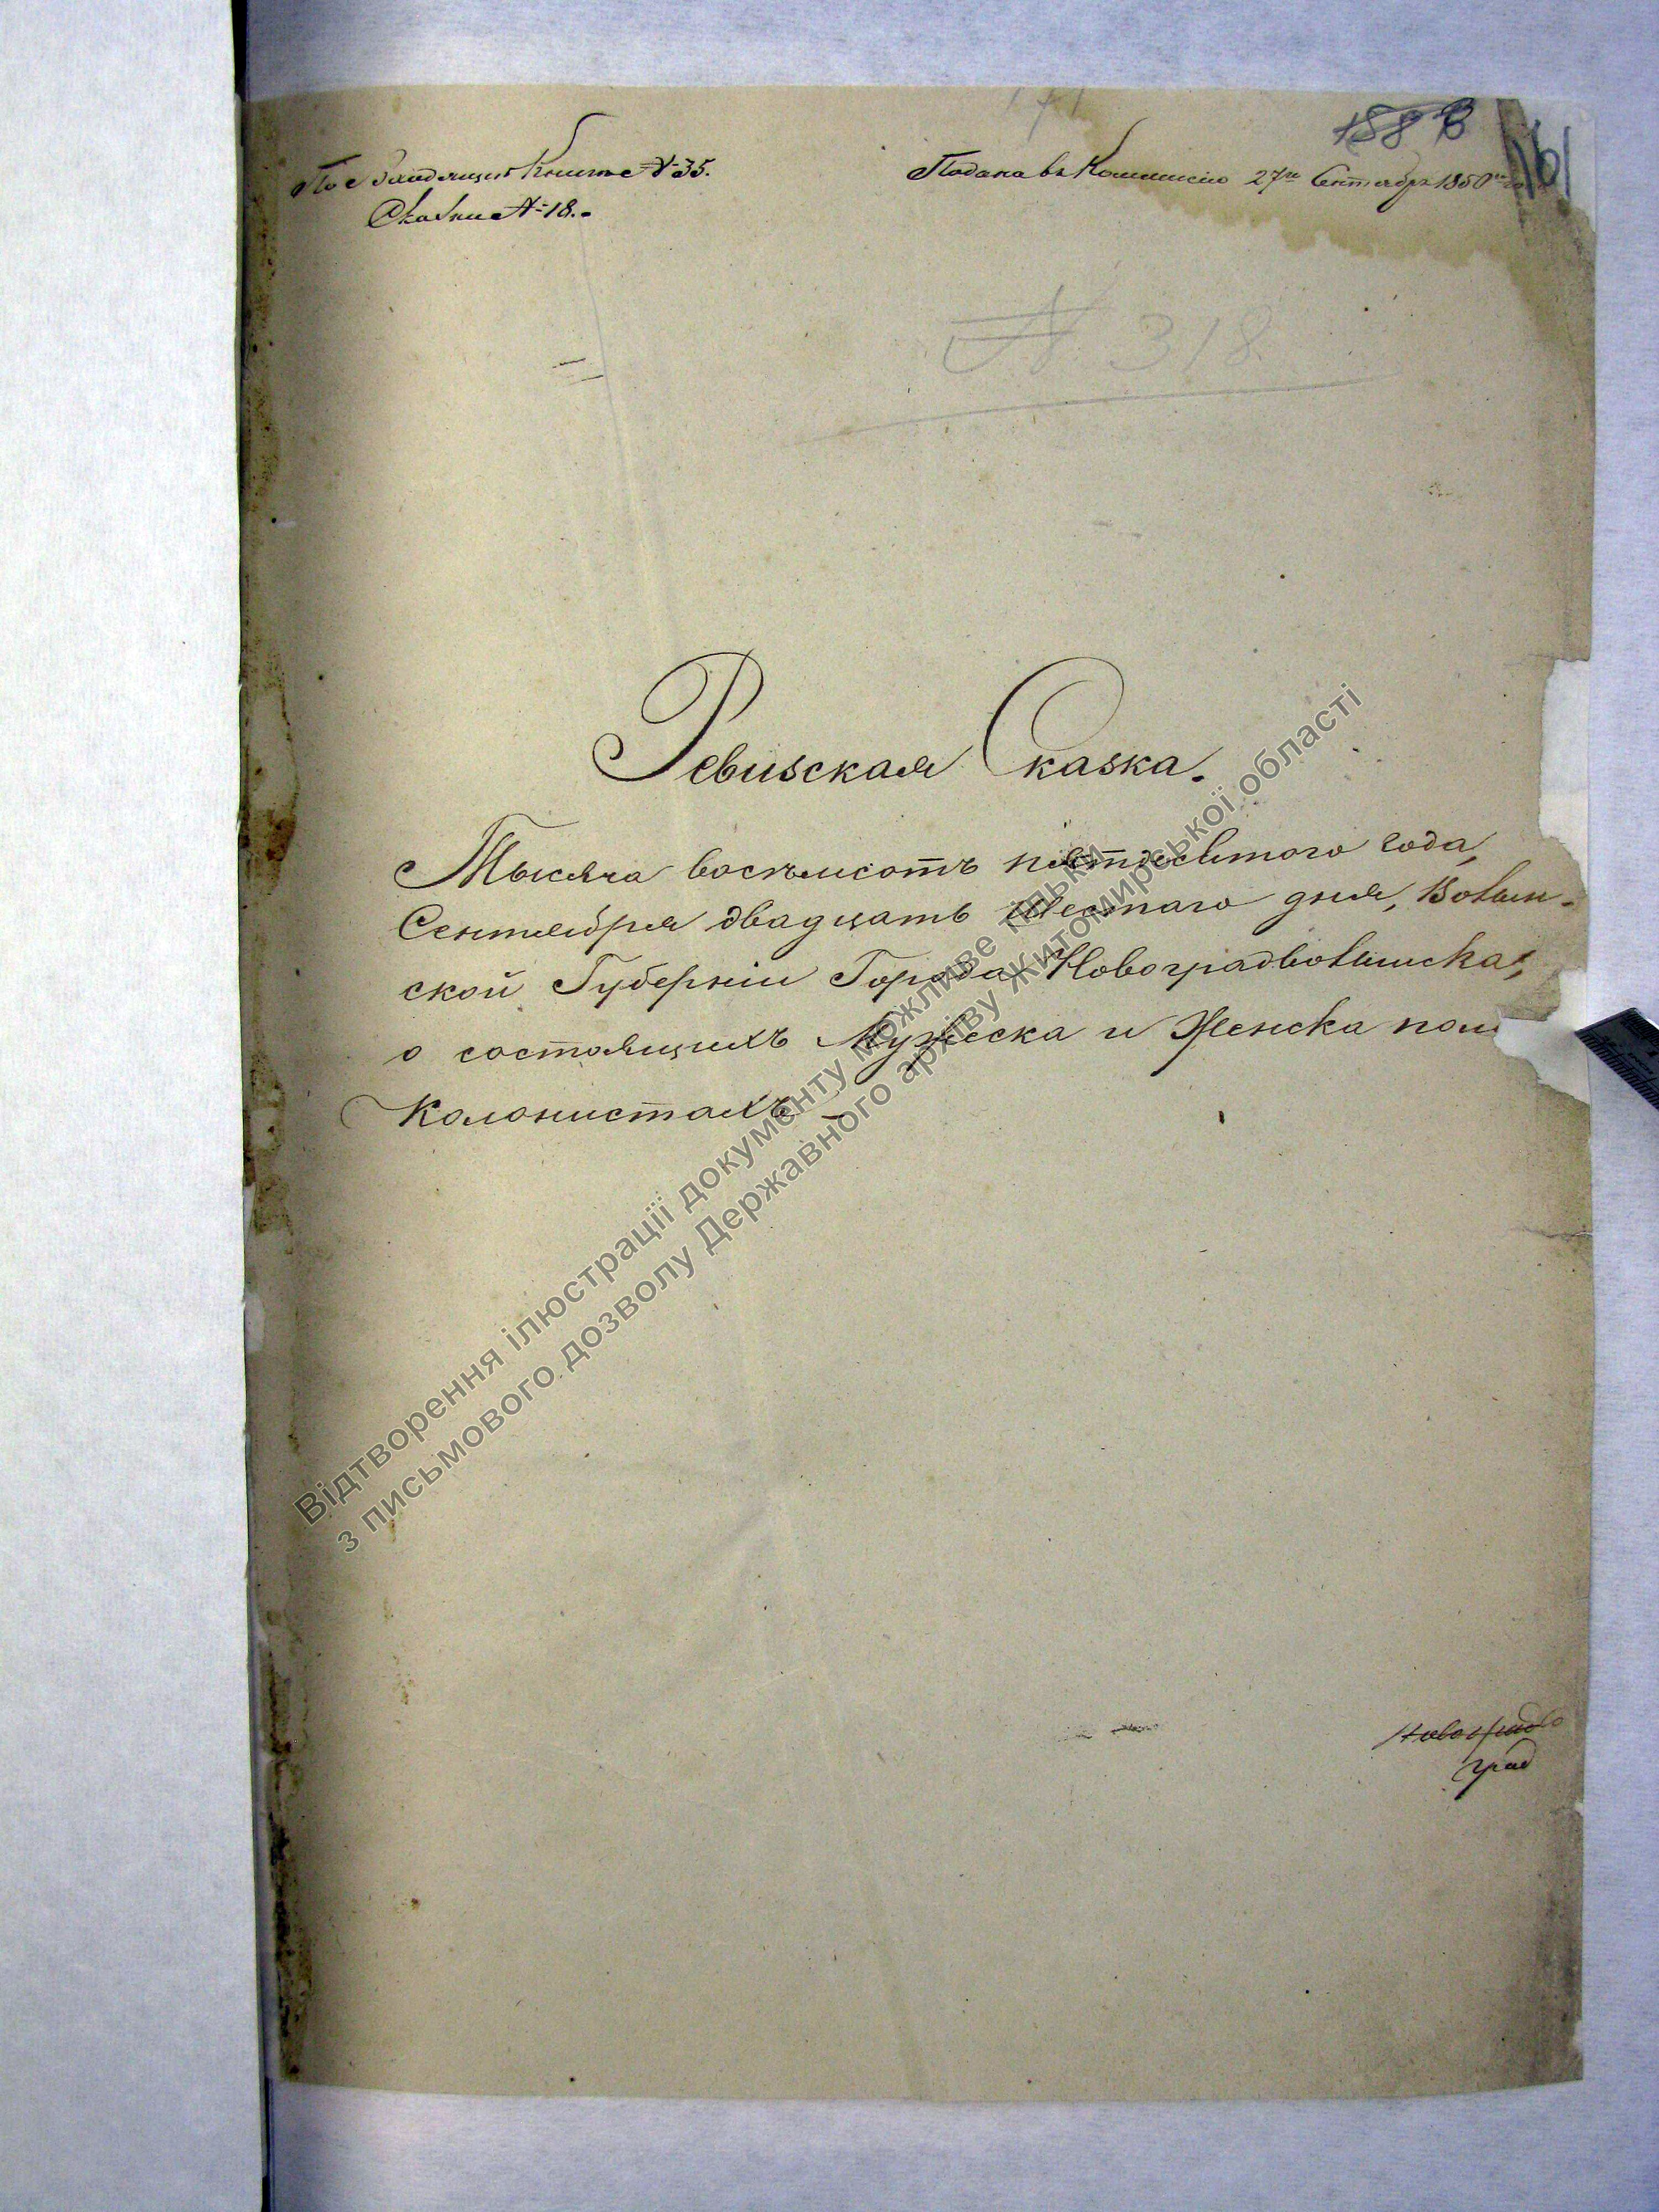 По входящей Книге № 35.
Сказки № 18.
Подана въ Коммисию 27го Сентября 1850го
188
161
№ 318
Ревизская Сказка.
Тысяча восемьсотъ пятдесятого года,
Сентября двадцать шестаго дня, Волын-
ской Губерніи Города Новоградволынска,
о состоящихъ Мужеска и Женска пола
Колонистахъ
град
Відтворення ілюстрації документу можливе тільки
з письмового дозволу Державного архіву Житомирської області